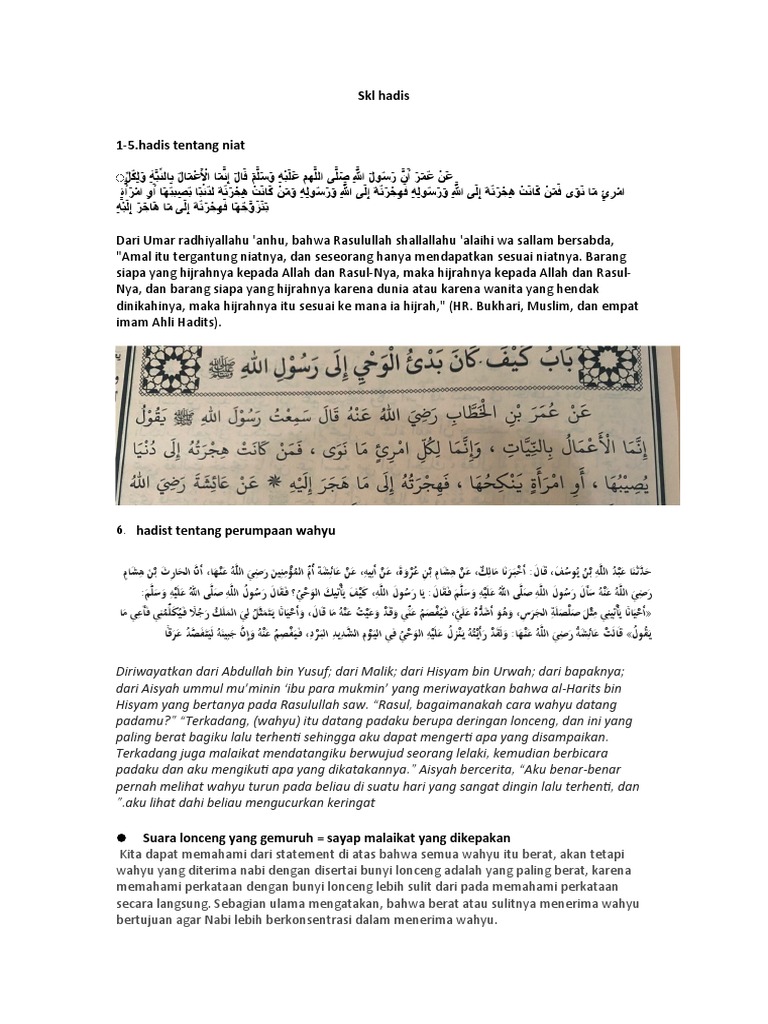 Skl hadis
1-5.hadis tentang niat
عَنْ عُمَرَ أَنَّ رَسُولَ اللَّهِ صَلَّى اللَّهم عَلَيْهِ وَسَلَّمَ قَالَ إِنَّمَا الْأَعْمَالُ بِالنِّيَّةِ وَلِكُلِّ
امْرِئٍ مَا نَوَى فَمَنْ كَانَتْ هِجْرَتُهُ إِلَى اللَّهِ وَرَسُولِهِ فَهِجْرَتُهُ إِلَى اللَّهِ وَرَسُولِهِ وَمَنْ كَانَتْ هِجْرَتُهُ لدُنْيَا يُصِيبُهَا أَوِ امْرَأَةٍ
يَتَزَوَّجُهَا فَهِجْرَتُهُ إِلَى مَا هَاجَرَ إِلَيْهِ
Dari Umar radhiyallahu 'anhu, bahwa Rasulullah shallallahu 'alaihi wa sallam bersabda,
"Amal itu tergantung niatnya, dan seseorang hanya mendapatkan sesuai niatnya. Barang
siapa yang hijrahnya kepada Allah dan Rasul-Nya, maka hijrahnya kepada Allah dan Rasul-
Nya, dan barang siapa yang hijrahnya karena dunia atau karena wanita yang hendak
dinikahinya, maka hijrahnya itu sesuai ke mana ia hijrah," (HR. Bukhari, Muslim, dan empat
imam Ahli Hadits).
بَابُ كَيْفَ كَانَ بَدْئُ الْوَحْيِ إِلَى رَسُوْلِ اللهِ ﷺ
عَنْ عُمَرَ بْنِ الْخَطَّابِ رَضِيَ اللهُ عَنْهُ قَالَ سَمِعْتُ رَسُوْلَ اللهِ ﷺ يَقُوْلُ
إِنَّمَا الْأَعْمَالُ بِالنِّيَّاتِ ، وَإِنَّمَا لِكُلِّ امْرِئٍ مَا نَوَى ، فَمَنْ كَانَتْ هِجْرَتُهُ إِلَى دُنْيَا
يُصِيْبُهَا ، أَوِ امْرَأَةٍ يَنْكِحُهَا ، فَهِجْرَتُهُ إِلَى مَا هَجَرَ إِلَيْهِ * عَنْ عَائِشَةَ رَضِيَ اللهُ
6. hadist tentang perumpaan wahyu
حَدَّثَنَا عَبْدُ اللَّهِ بْنُ يُوسُفَ، قَالَ: أَخْبَرَنَا مَالِكٌ، عَنْ هِشَامِ بْنِ عُرْوَةَ، عَنْ أَبِيهِ، عَنْ عَائِشَةَ أُمِّ المُؤْمِنِينَ رَضِيَ اللَّهُ عَنْهَا، أَنَّ الحَارِثَ بْنَ هِشَامٍ
رَضِيَ اللَّهُ عَنْهُ سَأَلَ رَسُولَ اللَّهِ صَلَّى اللهُ عَلَيْهِ وَسَلَّمَ فَقَالَ: يَا رَسُولَ اللَّهِ، كَيْفَ يَأْتِيكَ الوَحْيُ؟ فَقَالَ رَسُولُ اللَّهِ صَلَّى اللهُ عَلَيْهِ وَسَلَّمَ:
«أَحْيَانًا يَأْتِينِي مِثْلَ صَلْصَلَةِ الجَرَسِ، وَهُوَ أَشَدُّهُ عَلَيَّ، فَيُفْصَمُ عَنِّي وَقَدْ وَعَيْتُ عَنْهُ مَا قَالَ، وَأَحْيَانًا يَتَمَثَّلُ لِيَ المَلَكُ رَجُلًا فَيُكَلِّمُنِي فَأَعِي مَا
يَقُولُ» قَالَتْ عَائِشَةُ رَضِيَ اللَّهُ عَنْهَا: وَلَقَدْ رَأَيْتُهُ يَنْزِلُ عَلَيْهِ الوَحْيُ فِي اليَوْمِ الشَّدِيدِ البَرْدِ، فَيَفْصِمُ عَنْهُ وَإِنَّ جَبِينَهُ لَيَتَفَصَّدُ عَرَقًا
Diriwayatkan dari Abdullah bin Yusuf; dari Malik; dari Hisyam bin Urwah; dari bapaknya;
dari Aisyah ummul mu'minin ‘ibu para mukmin’ yang meriwayatkan bahwa al-Harits bin
Hisyam yang bertanya pada Rasulullah saw. “Rasul, bagaimanakah cara wahyu datang
padamu?” “Terkadang, (wahyu) itu datang padaku berupa deringan lonceng, dan ini yang
paling berat bagiku lalu terhenti sehingga aku dapat mengerti apa yang disampaikan.
Terkadang juga malaikat mendatangiku berwujud seorang lelaki, kemudian berbicara
padaku dan aku mengikuti apa yang dikatakannya.” Aisyah bercerita, “Aku benar-benar
pernah melihat wahyu turun pada beliau di suatu hari yang sangat dingin lalu terhenti, dan
”.aku lihat dahi beliau mengucurkan keringat
● Suara lonceng yang gemuruh = sayap malaikat yang dikepakan
Kita dapat memahami dari statement di atas bahwa semua wahyu itu berat, akan tetapi
wahyu yang diterima nabi dengan disertai bunyi lonceng adalah yang paling berat, karena
memahami perkataan dengan bunyi lonceng lebih sulit dari pada memahami perkataan
secara langsung. Sebagian ulama mengatakan, bahwa berat atau sulitnya menerima wahyu
bertujuan agar Nabi lebih berkonsentrasi dalam menerima wahyu.